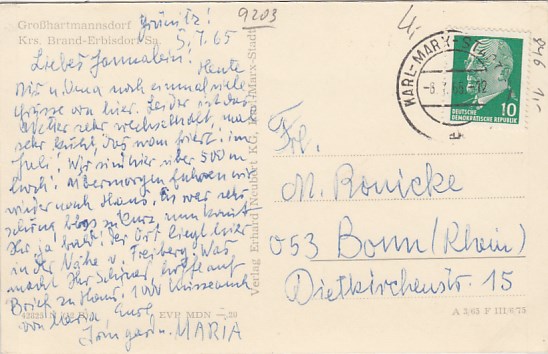 Großhartmannsdorf
Krs. Brand-Erbisdorf Sa.
9203
5.7.65
Liebes Hannalein! Heute
Dir u. Oma noch einmal viele
Grüsse von hier. Leider ist das
Wetter sehr wechselhaft, mal
sehr kühl, das man friert! im
Juli! Wir sind hier über 500 m
hoch! Übermorgen fahren wir
wieder nach Haus. Es war sehr
schön, bloss zu kurz, nun kommt
Ihr ja bald! Der Ort liegt hier
in der Nähe v. Freiberg. Was
macht Ihr Schönes, hoffe auf
Brief zu Haus. 1000
von Maria, Eure
MARIA
42829 EVP MDN -,20
Verlag Erhard Neubert KG, Karl-Marx-Stadt
KARL-MARX-STADT
-6.7.65-12
10
DEUTSCHE
DEMOKRATISCHE REPUBLIK
Frl.
M. Ronicke
053 Bonn (Rhein)
Dietkirchenstr. 15
A 3/65 F III/6/75